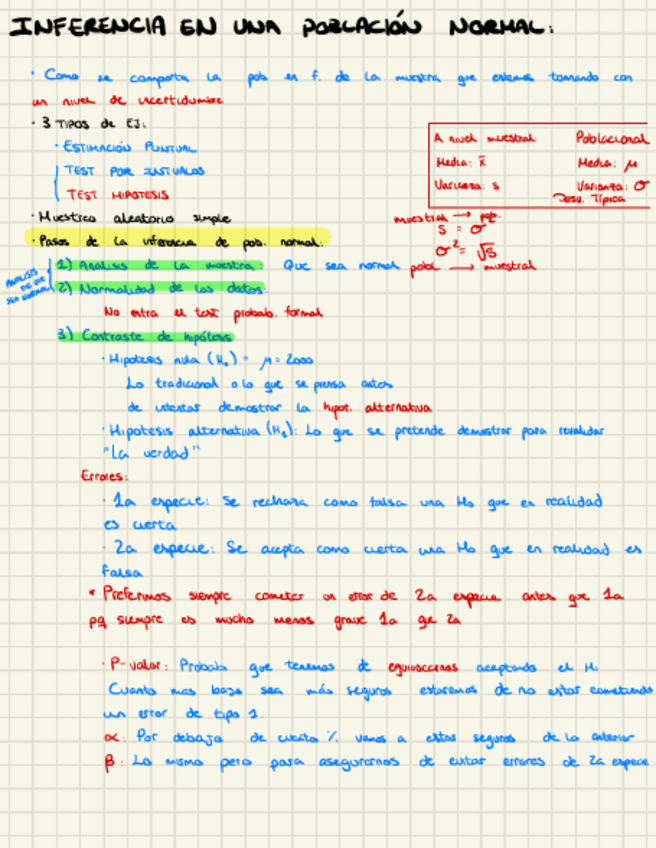 INFERENCIA EN UNA POBLACIÓN NORMAL:
· Como se comporta la pob en f. de la muestra que estemos tomando con
un nivel de incertidumbre
· 3 TIPOS de EJ:
· ESTIMACIÓN PUNTUAL
TEST POR INTERVALOS
TEST HIPOTESIS
A nivel muestral Poblacional
Media: x̄ Media: μ
Varianza: s Varianza: σ
Desv. Típica
· Muestreo aleatorio simple
muestral → pob.
S = σ
σ² = √S
pobl → muestral
· Pasos de la inferencia de pob. normal:
1) Analisis de la muestra: Que sea normal
2) Normalidad de los datos:
ANALISIS DE QUE SEA NORMAL
No entra el test probab. formal
3) Contraste de hipótesis
· Hipotesis nula (H₀) = μ = 2000
Lo tradicional o lo que se piensa antes
de intentar demostrar la hipot. alternativa
· Hipotesis alternativa (H₁): Lo que se pretende demostrar para revalidar
"La verdad"
Errores:
· 1a especie: Se rechaza como falsa una H₀ que en realidad
es cierta
· 2a especie: Se acepta como cierta una H₀ que en realidad es
falsa
* Preferimos siempre cometer un error de 2a especie antes que 1a
pq siempre es mucho menos grave 1a que 2a
· P-valor: Probab que tenemos de equivocarnos aceptando el H₁
Cuanto mas bajo sea más seguros estaremos de no estar cometiendo
un error de tipo 1.
α: Por debajo de cuanto % vamos a estar seguros de lo anterior
β: Lo mismo pero para asegurarnos de evitar errores de 2a especie